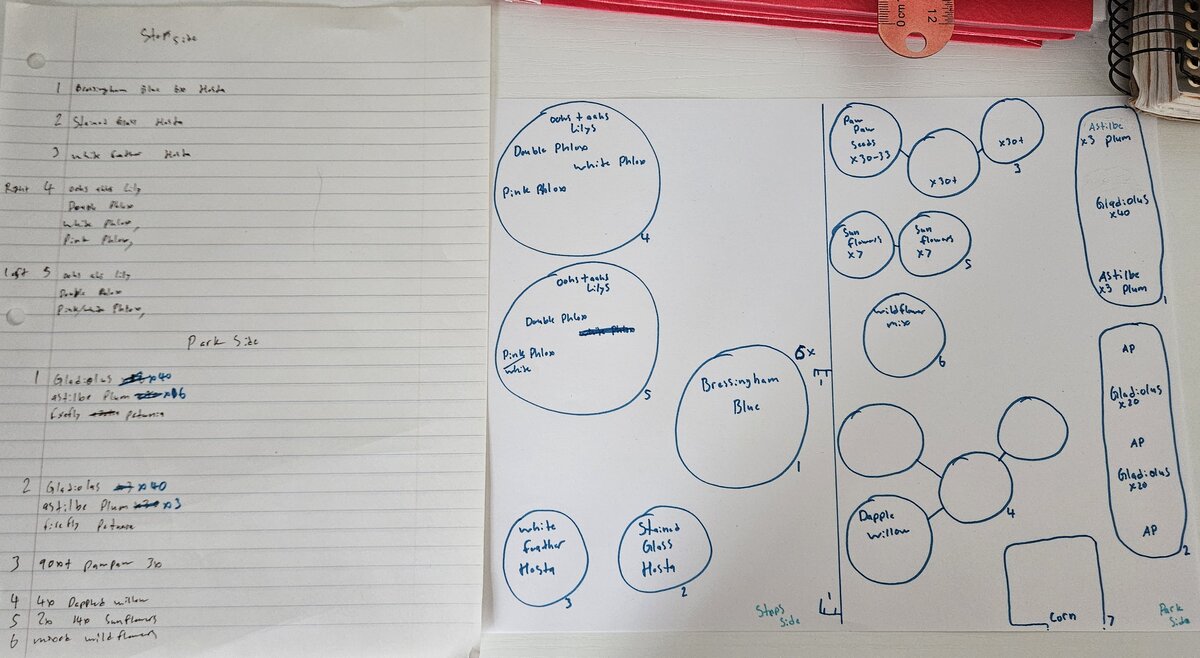 Steps Side
1 Bressingham Blue 6x Hosta
2 Stained Glass Hosta
3 White Feather Hosta
Right 4 oohs ahs Lily
Double Phlox
White Phlox,
Pink Phlox,
Left 5 oohs ahs Lily
Double Phlox
Pink/white Phlox,
Park Side
1 Gladiolus x40
astilbe Plum x06
firefly Petunia
2 Gladiolus x40
astilbe Plum x3
firefly Petunia
3 90x+ pawpaw 3x
4 4x Dappled willow
5 2x 14x Sunflowers
6 mixed wildflowers
oohs + aahs
Lilys
Double Phlox
White Phlox
Pink Phlox
4
oohs + aahs
Lilys
Double Phlox
White Phlox
Pink Phlox
White
5
6x
Bressingham
Blue
1
White
Feather
Hosta
3
Stained
Glass
Hosta
2
Steps
Side
Paw
Paw
Seeds
x30-33
x30+
x30+
3
Sun
flowers
x7
Sun
flowers
x7
5
wildflower
mix
6
Dapple
Willow
4
Corn
7
Astilbe
x3 Plum
Gladiolus
x40
Astilbe
x3 Plum
1
AP
Gladiolus
x20
AP
Gladiolus
x20
AP
2
Park
Side
0 cm 1 2